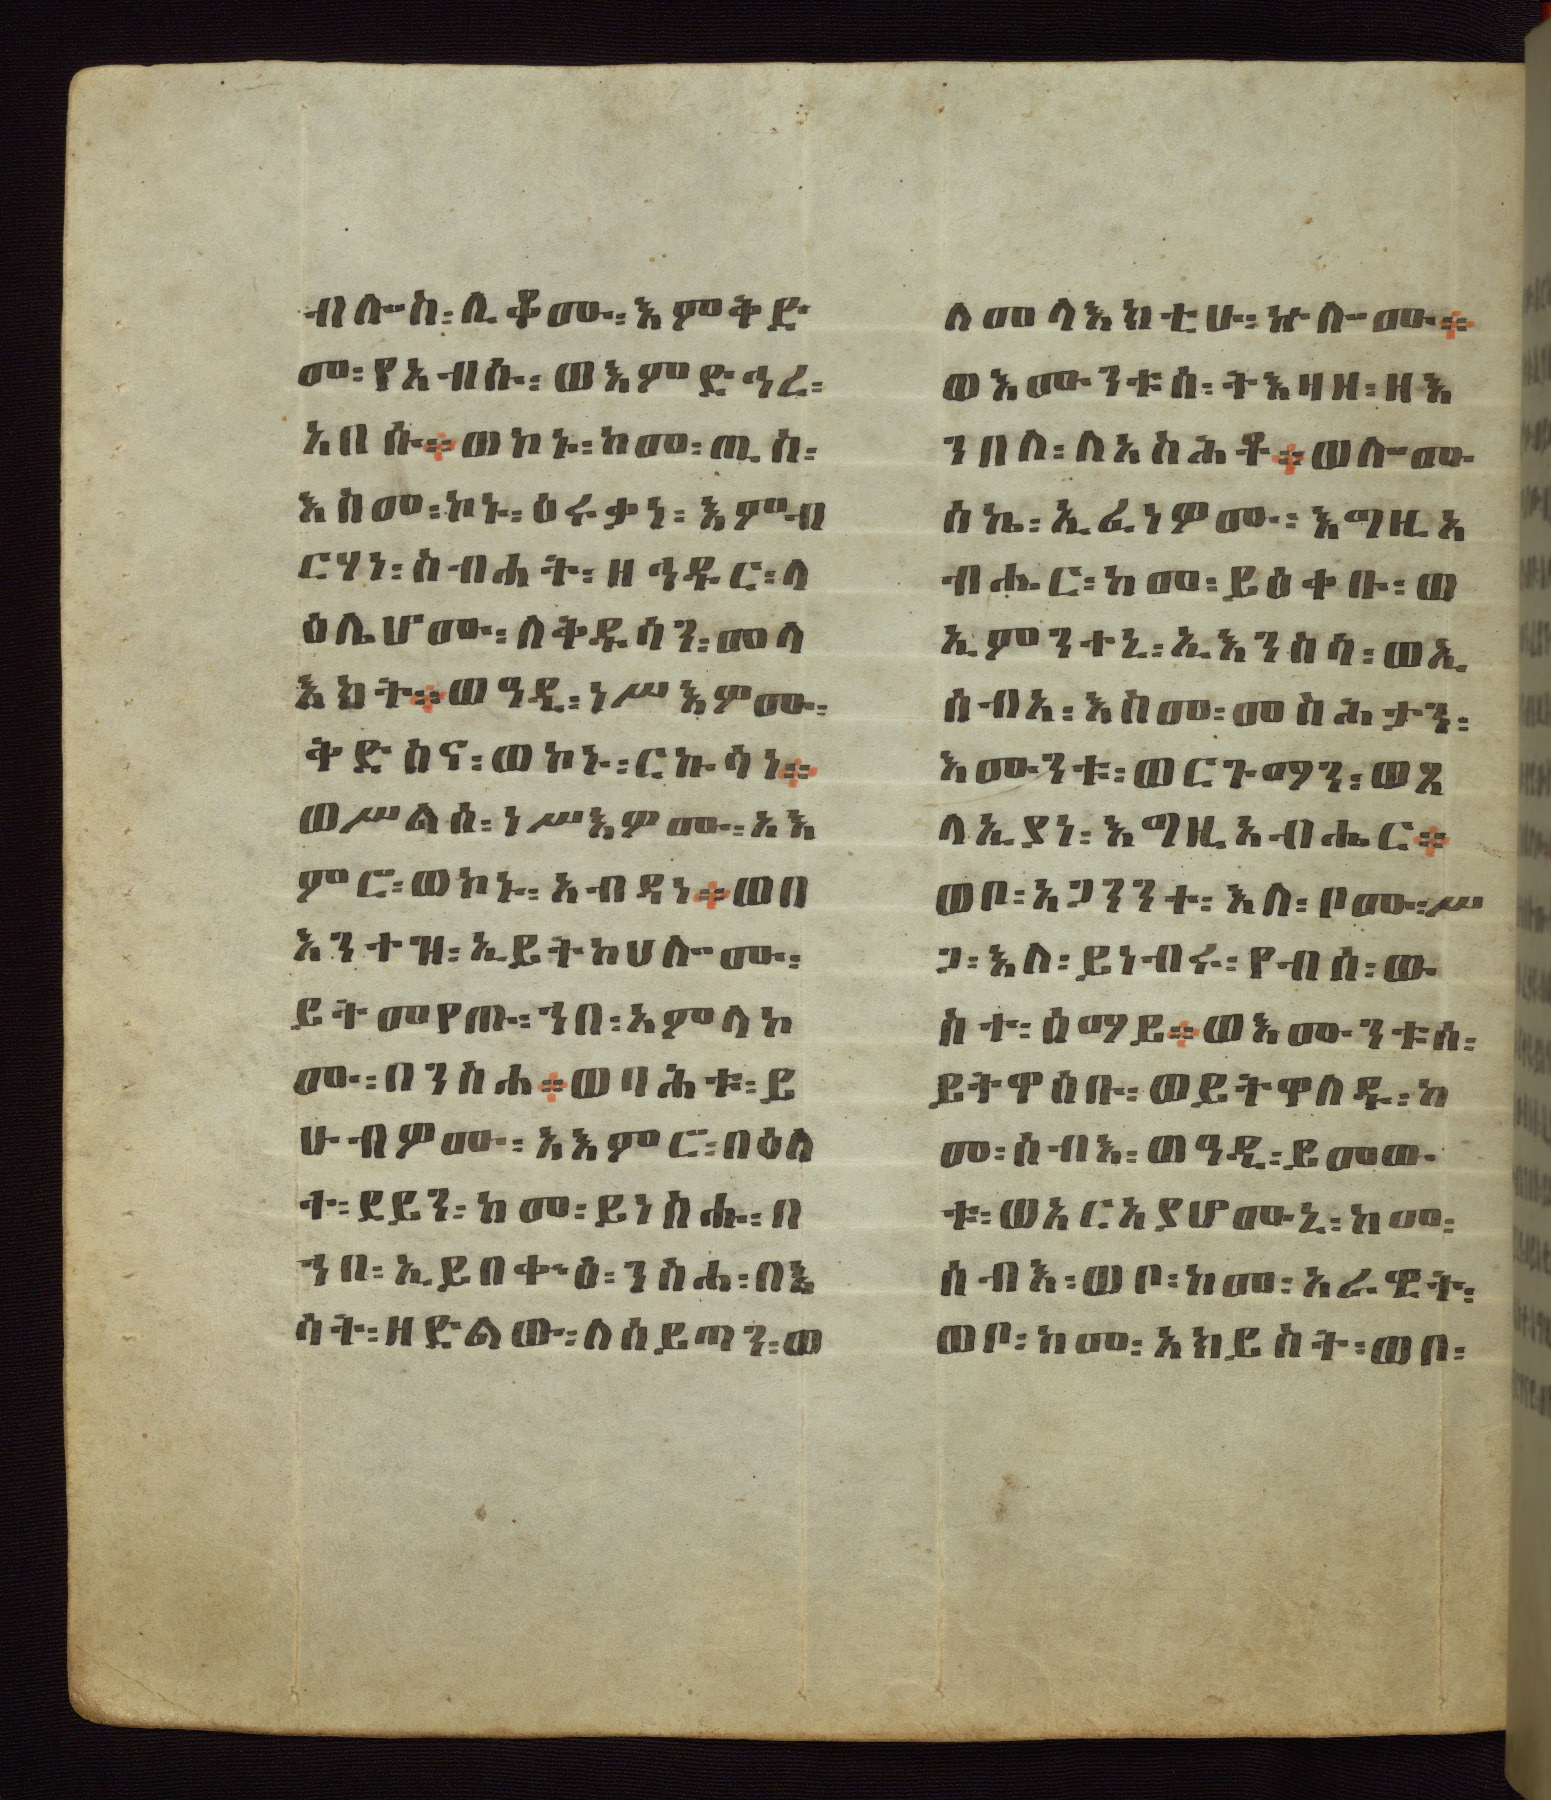 ብሎስ፡ሊቆሙ፡እምቅድ
መ፡የአብሱ፡ወእምድኅረ፡
አበሱ።ወኮኑ፡ከመ፡ጢስ፡
እስመ፡ኮኑ፡ዕሩቃነ፡እምብ
ርሃነ፡ስብሐት፡ዘኅዱር፡ላ
ዕሌሆሙ፡ለቅዱሳን፡መላ
እክት።ወዓዲ፡ነሥእምሙ፡
ቅድስና፡ወኮኑ፡ርኩሳነ።
ወሥልሰ፡ነሥእዎሙ፡አእ
ምሮ፡ወኮኑ፡አብዳነ።ወበ
እንተዝ፡ኢይትከሀሎሙ፡
ይትመየጡ፡ኀበ፡አምላኮ
ሙ፡በንስሐ።ወባሕቱ፡ይ
ሁብዎሙ፡አእምሮ፡በዕለ
ተ፡ደይን፡ከመ፡ይነስሑ፡በ
ኀበ፡ኢይበቀፁዕ፡ንስሐ፡በእ
ሳት፡ዘድልው፡ለሰይጣን፡ወ
ለመላእክቲሁ፡ኵሎሙ።
ወእሙንቱሰ፡ትእዛዘ፡ዘእ
ንበለ፡ለአስሕቶ።ወሎሙ
ሰኬ፡ኢፈነዎሙ፡እግዚአ
ብሔር፡ከመ፡ይዕቀቡ፡ወ
ኢምንተኒ፡ኢእንስሳ፡ወኢ
ሰብአ፡እስመ፡መስሕታን፡
እሙንቱ፡ወርጉማን፡ወጸ
ላኢያነ፡እግዚአብሔር።
ወቦ፡አጋንንተ፡እለ፡ቦሙ፡ሥ
ጋ፡እለ፡ይነብሩ፡የብሰ፡ው
ስተ፡ሰማይ።ወእሙንቱሰ፡
ይትዋሰቡ፡ወይትዋለዱ፡ከ
መ፡ሰብእ፡ወዓዲ፡ይመው
ቱ፡ወአርአያሆሙኒ፡ከመ፡
ሰብእ፡ወቦ፡ከመ፡አራዊት፡
ወቦ፡ከመ፡አክይስት፡ወቦ፡